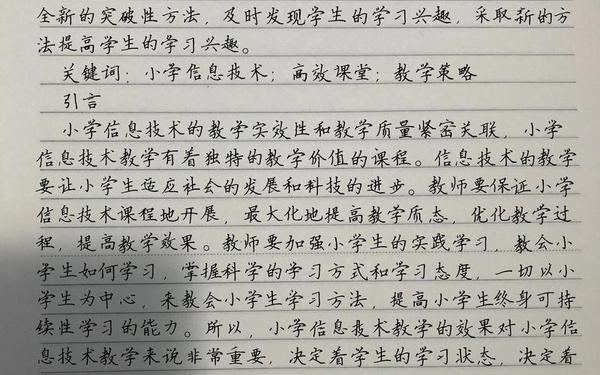 全新的突破性方法，及时发现学生的学习兴趣，采取新的方
法提高学生的学习兴趣。
关键词：小学信息技术；高效课堂；教学策略
引言
小学信息技术的教学实效性和教学质量紧密关联，小学
信息技术教学有着独特的教学价值的课程。信息技术的教学
要让小学生适应社会的发展和科技的进步。教师要保证小学
信息技术课程地开展，最大化地提高教学质态，优化教学过
程，提高教学效果。教师要加强小学生的实践学习，教会小
学生如何学习，掌握科学的学习方式和学习态度，一切以小
学生为中心，来教会小学生学习方法，提高小学生终身可持
续性学习的能力。所以，小学信息技术教学的效果对小学信
息技术教学来说非常重要，决定着学生的学习状态，决定着